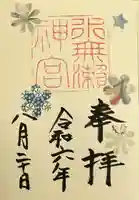 奉拝
水無瀬
神宮
令和六年
八月二十日